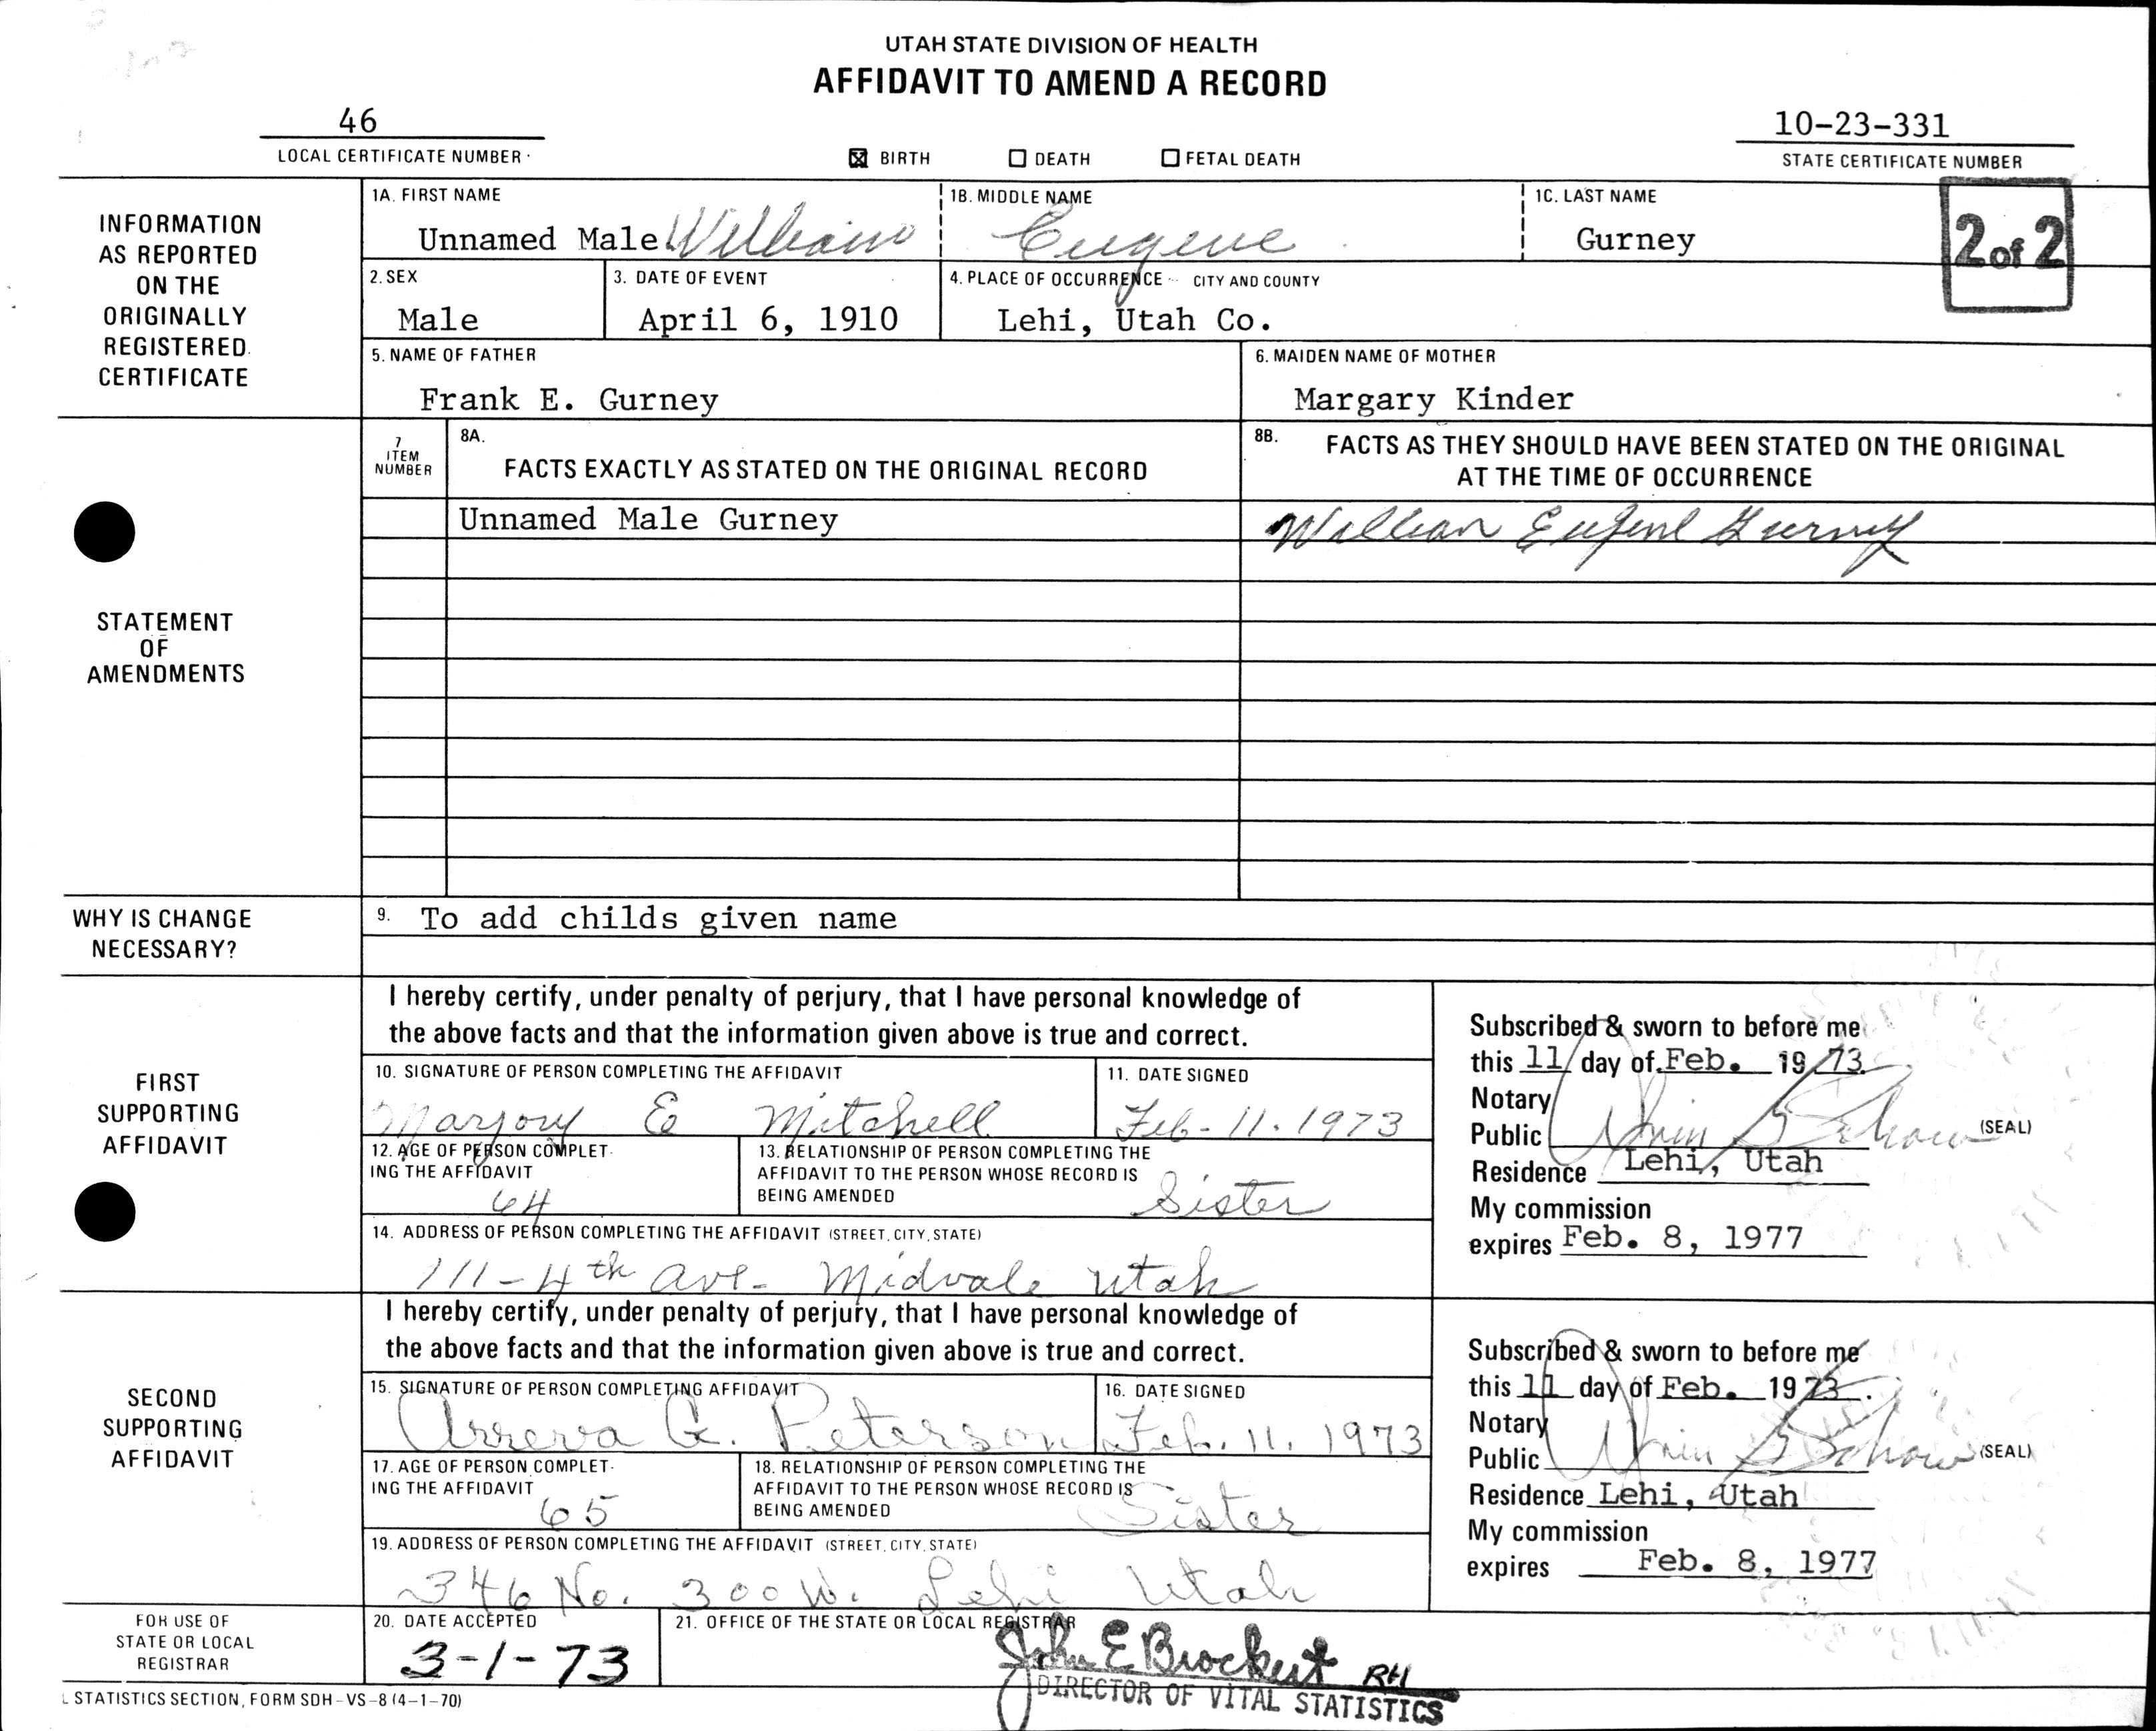 UTAH STATE DIVISION OF HEALTH
AFFIDAVIT TO AMEND A RECORD
46
10-23-331
LOCAL CERTIFICATE NUMBER
☒ BIRTH ☐ DEATH ☐ FETAL DEATH
STATE CERTIFICATE NUMBER
INFORMATION
AS REPORTED
ON THE
ORIGINALLY
REGISTERED
CERTIFICATE
1A. FIRST NAME
Unnamed Male William
1B. MIDDLE NAME
Eugene
1C. LAST NAME
Gurney
2 of 2
2. SEX
Male
3. DATE OF EVENT
April 6, 1910
4. PLACE OF OCCURRENCE CITY AND COUNTY
Lehi, Utah Co.
5. NAME OF FATHER
Frank E. Gurney
6. MAIDEN NAME OF MOTHER
Margary Kinder
STATEMENT
OF
AMENDMENTS
7
ITEM
NUMBER
8A.
FACTS EXACTLY AS STATED ON THE ORIGINAL RECORD
8B. FACTS AS THEY SHOULD HAVE BEEN STATED ON THE ORIGINAL
AT THE TIME OF OCCURRENCE
Unnamed Male Gurney
William Eugene Gurney
WHY IS CHANGE
NECESSARY?
9. To add childs given name
FIRST
SUPPORTING
AFFIDAVIT
I hereby certify, under penalty of perjury, that I have personal knowledge of
the above facts and that the information given above is true and correct.
10. SIGNATURE OF PERSON COMPLETING THE AFFIDAVIT
Marjory E Mitchell
11. DATE SIGNED
Feb-11-1973
12. AGE OF PERSON COMPLET-
ING THE AFFIDAVIT
64
13. RELATIONSHIP OF PERSON COMPLETING THE
AFFIDAVIT TO THE PERSON WHOSE RECORD IS
BEING AMENDED
Sister
14. ADDRESS OF PERSON COMPLETING THE AFFIDAVIT (STREET, CITY, STATE)
111-4th ave- Midvale Utah
Subscribed & sworn to before me
this 11 day of Feb. 1973
Notary
Public
(SEAL)
Residence Lehi, Utah
My commission
expires Feb. 8, 1977
SECOND
SUPPORTING
AFFIDAVIT
I hereby certify, under penalty of perjury, that I have personal knowledge of
the above facts and that the information given above is true and correct.
15. SIGNATURE OF PERSON COMPLETING AFFIDAVIT
Arreva G. Peterson
16. DATE SIGNED
Feb. 11, 1973
17. AGE OF PERSON COMPLET-
ING THE AFFIDAVIT
65
18. RELATIONSHIP OF PERSON COMPLETING THE
AFFIDAVIT TO THE PERSON WHOSE RECORD IS
BEING AMENDED
Sister
19. ADDRESS OF PERSON COMPLETING THE AFFIDAVIT (STREET, CITY, STATE)
346 No. 300 W. Lehi Utah
Subscribed & sworn to before me
this 11 day of Feb. 1973.
Notary
Public
(SEAL)
Residence Lehi, Utah
My commission
expires Feb. 8, 1977
FOR USE OF
STATE OR LOCAL
REGISTRAR
20. DATE ACCEPTED
3-1-73
21. OFFICE OF THE STATE OR LOCAL REGISTRAR
John E Brockert RH
DIRECTOR OF VITAL STATISTICS
L STATISTICS SECTION, FORM SDH-VS-8 (4-1-70)